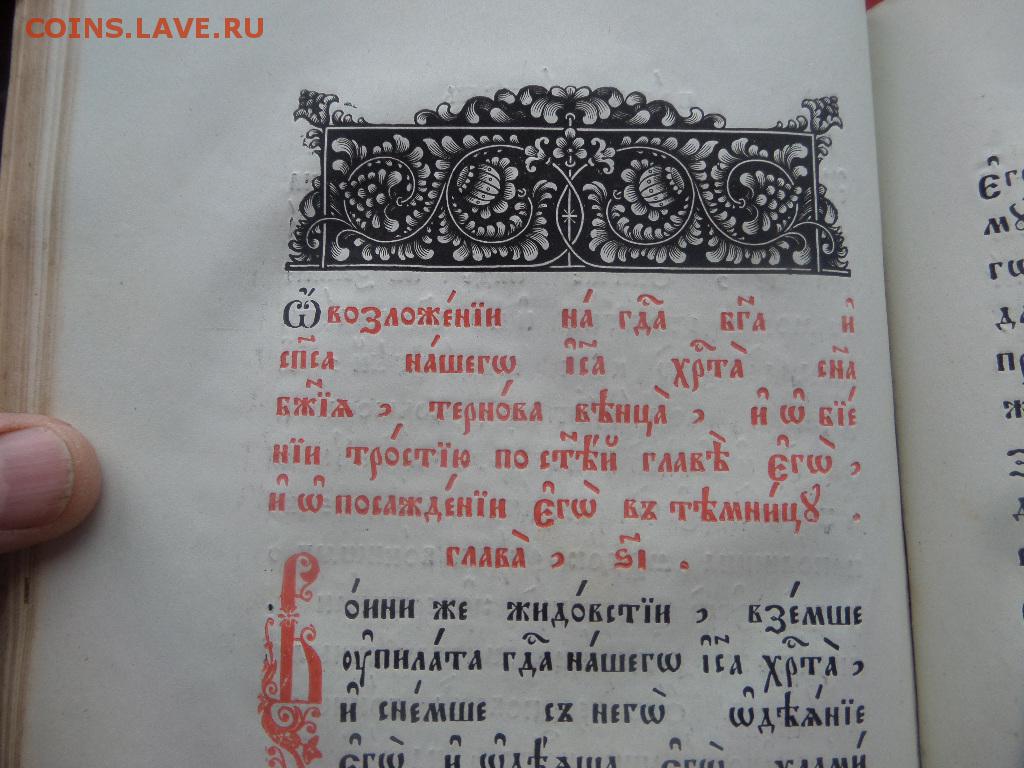 COINS.LAVE.RU
Ѽ возложе́нїи на́ гдⷭ҇а бг҃а и҆
сп҃са на́шегѡ і҆с҃а хрⷭ҇та̀ сн҃а
бж҃їѧ , терно́ва вѣнца̀ , и҆ ѡ҆ бїе́
нїи тро́стїю по ст҃ѣ́й главѣ̀ є҆гѡ̀ ,
и҆ ѡ҆ посажде́нїи є҆гѡ̀ въ тѣмни́цꙋ .
глава̀ , ѕ҃і .
Во́ини же жидо́встїи , взе́мше
ѹ҆ пила́та гдⷭ҇а на́шегѡ і҆с҃а хрⷭ҇та̀ ,
и҆ сне́мше съ негѡ̀ ѡ҆дѣѧ́нїе
є҆гѡ̀ и҆ ѡ҆дѣ́ѧша є҆гѡ̀ хлами́
є҆го
мꙋ
гѡ
да
пр